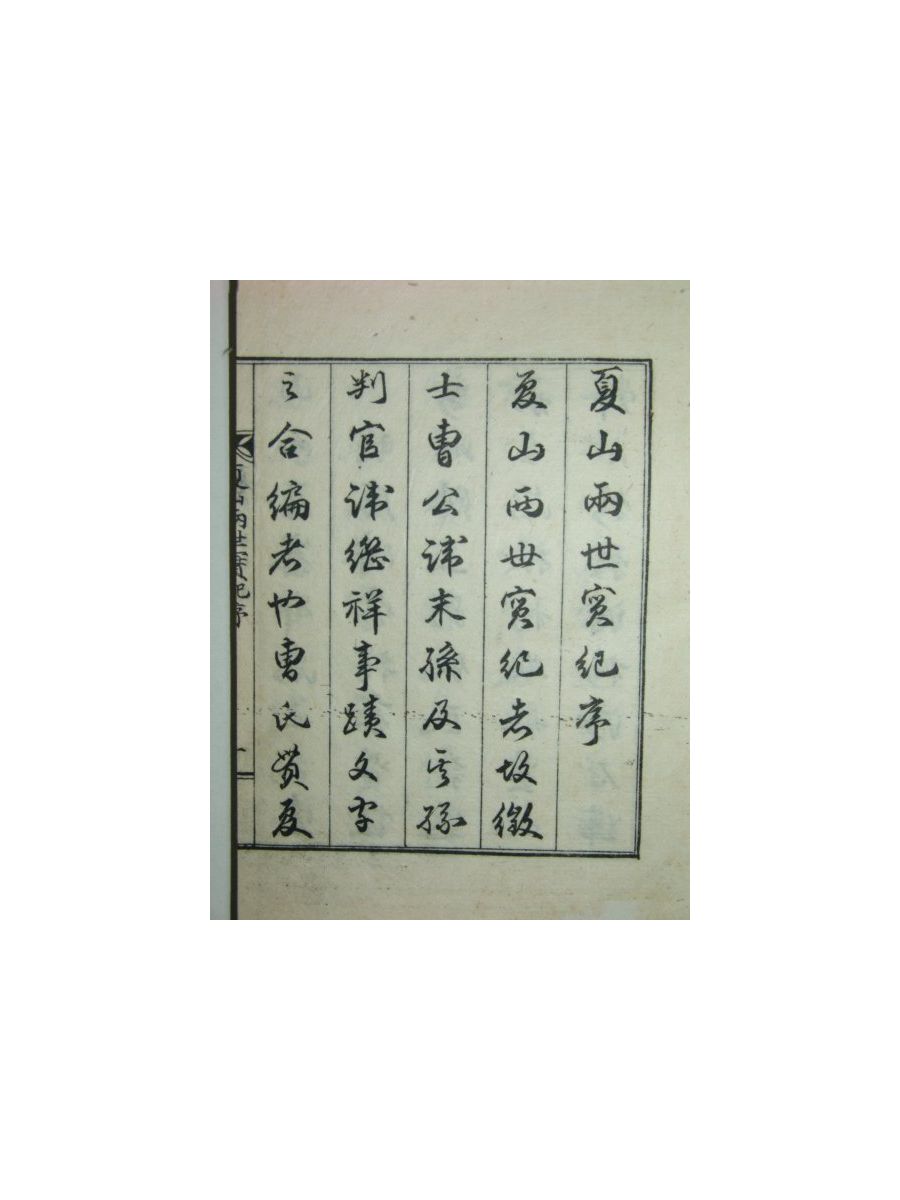 夏山兩世實紀序
夏山兩世實紀者故徵
士曺公諱末孫及其孫
判官諱繼祥事蹟文字
之合編者也曺氏貫夏
夏山兩世實紀序
一